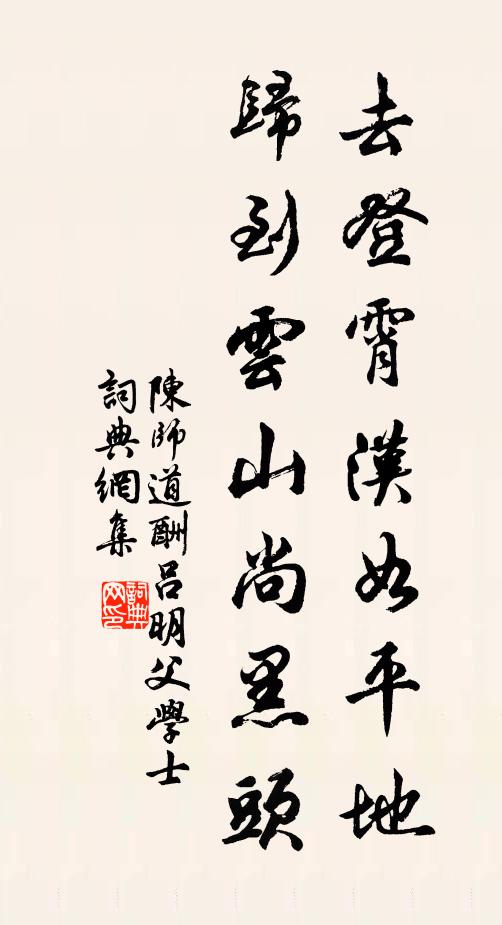 去登霄漢如平地
歸到雲山尚黑頭
陳師道酬呂明父學士
詞典網集
詞典网印